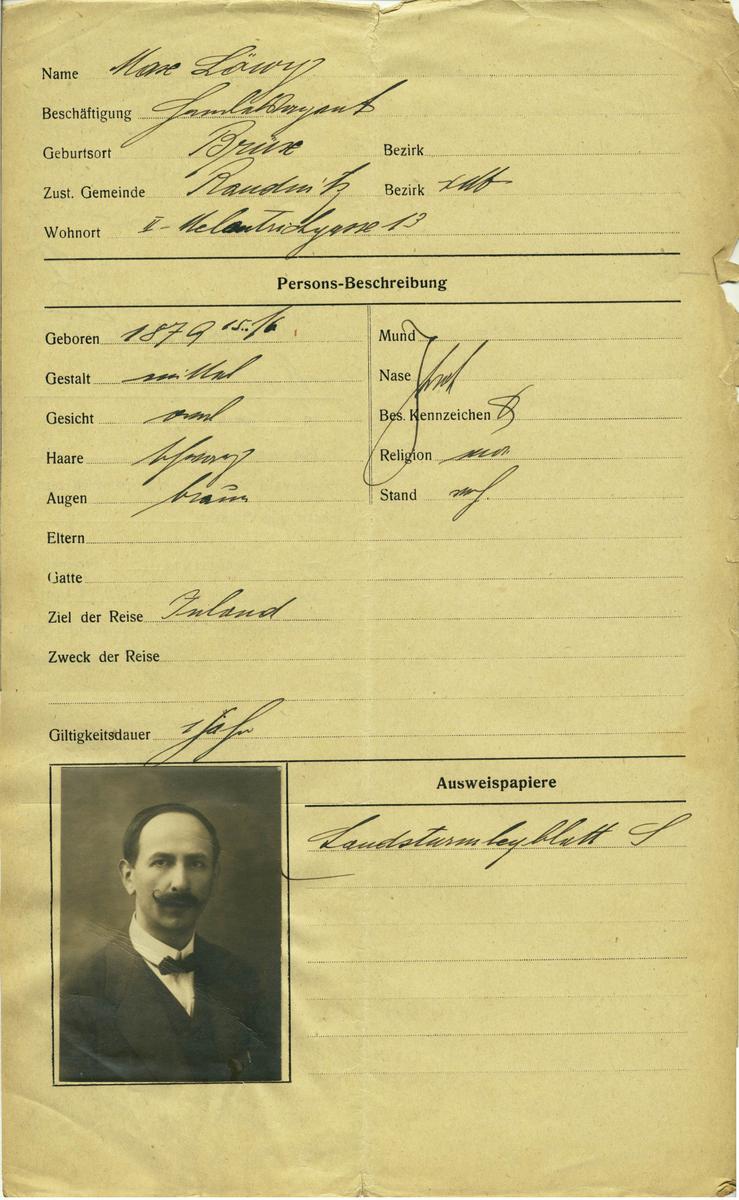 Name Max Löwy
Beschäftigung
Geburtsort Brüx Bezirk
Zust. Gemeinde Raudnitz Bezirk
Wohnort II - Melantrichgasse 13
Persons-Beschreibung
Geboren 1879 15./6
Mund
Gestalt mittel
Nase
Gesicht oval
Bes. Kennzeichen
Haare schwarz
Religion mos
Augen braun
Stand
Eltern
Gatte
Ziel der Reise Inland
Zweck der Reise
Giltigkeitsdauer 1 Jahr
Ausweispapiere